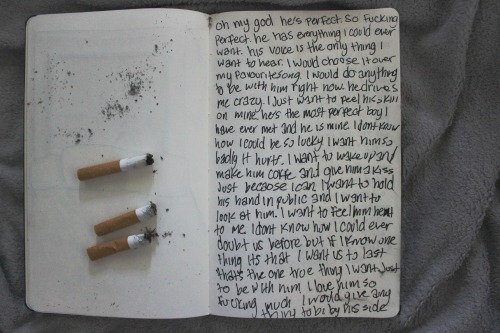 oh my god he's perfect. so fucking
perfect. he has everything I could ever
want. his voice is the only thing I
want to hear. I would choose it over
my favourite song. I would do anything
to be with him right now. he drives
me crazy. I just want to feel his skin
on mine. he's the most perfect boy I
have ever met and he is mine. I dont know
how I could be so lucky. I want him so
badly it hurts. I want to wake up and
make him coffe and give him a kiss
just because I can. I want to hold
his hand in public and I want to
look at him. I want to feel him next
to me. I dont know how I could ever
doubt us before but if I know one
thing its that I want us to last
thats the one true thing I want. Just
to be with him. I love him so
fucking much I would give any
thing to be by his side